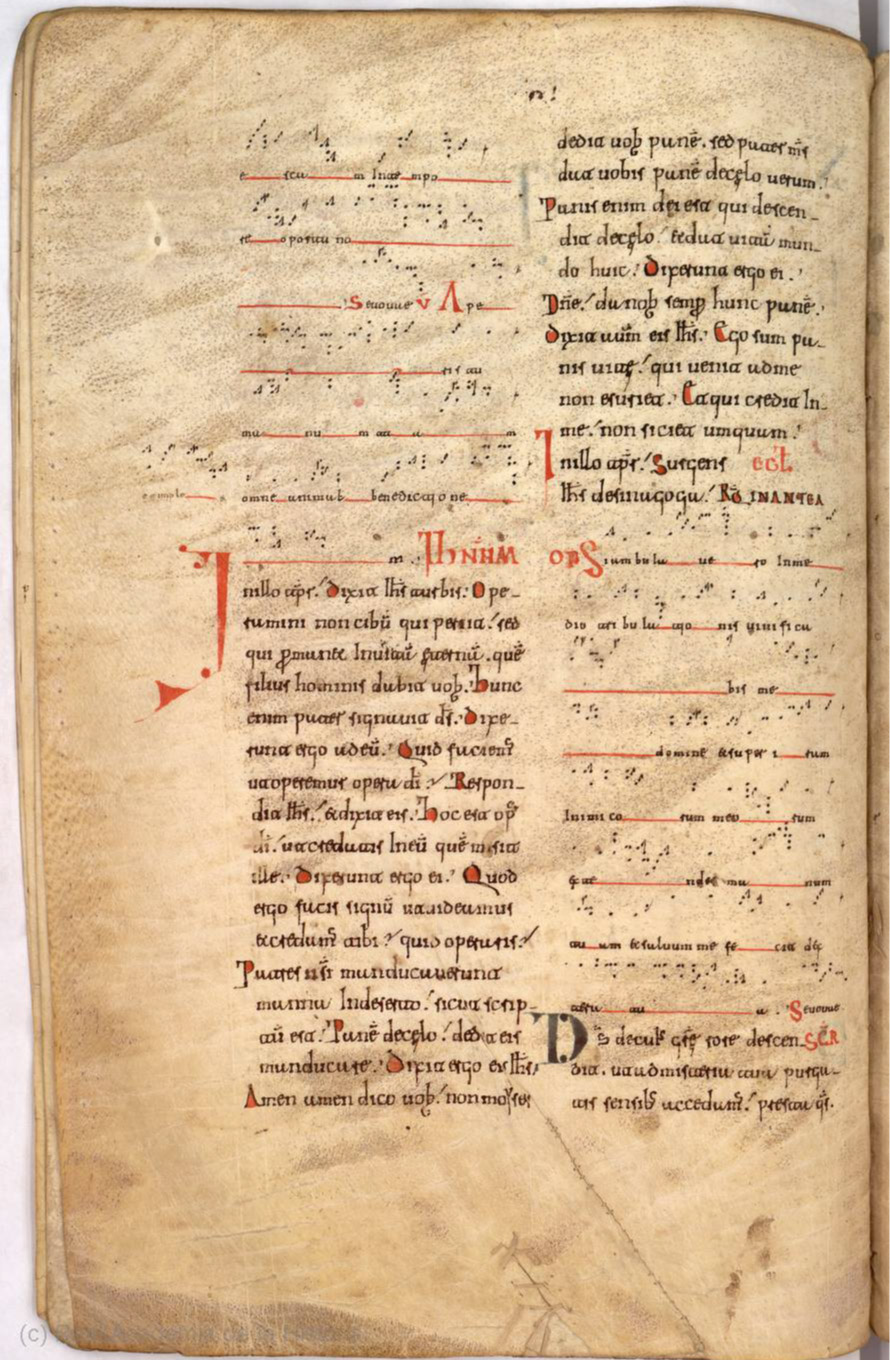 e scu m In tempo
re oportu no
Seuouae V Ape
ris tu
ma nu m tu a m
et imple omne animal benedictio ne
m
In illo tp̄r. Dixit Ihs̄ turbis. Ope
ramini non cibū qui perit. sed
qui ꝑmanet In uitā ęternā. quē
filius hominis dabit uob. Hunc
enim pater signauit ds̄. Dixe
runt ergo ad eū. Quid faciem̄
ut operemur opera di. Respon
dit Ihs̄. & dixit eis. Hoc est op̄
di. ut credatis In eū quē misit
ille. Dixerunt ergo ei. Quod
ergo facis signū ut uideamus
et credam̄ tibi. quid operaris.
Patres nr̄i manducauerunt
manna In deserto. sicut scrip
tū est. Panē de cęlo. dedit eis
manducare. Dixit ergo eis Ihs̄.
Amen amen dico uob. non moyses
dedit uob panē. sed pater ms̄
dat uobis panē de cęlo uerum.
Panis enim dei est qui descen
dit de cęlo. et dat uitā mun
do huic. Dixerunt ergo ei.
Dn̄e. da nob semꝑ hunc panē.
Dixit autm̄ eis Ihs̄. Ego sum pa
nis uitę. qui uenit ad me
non esuriet. Et qui credit In
me. non sitiet umquam.
In illo tp̄r. Surgens
Ihs̄ de sinagoga. INANTEA
Si ambula ue ro Inme
dio tri bu la tio nis uiuifica
bis me
domine & super i ram
Inimico rum meo rum
exte ndes ma num
tu am & saluum me fe cit dex
tera tu a. Seuouae
Ds̄ de cui gr̄ę rore descen
dit. ut ad misteria tua purga
tis sensib accedam̄. presta qs̄.